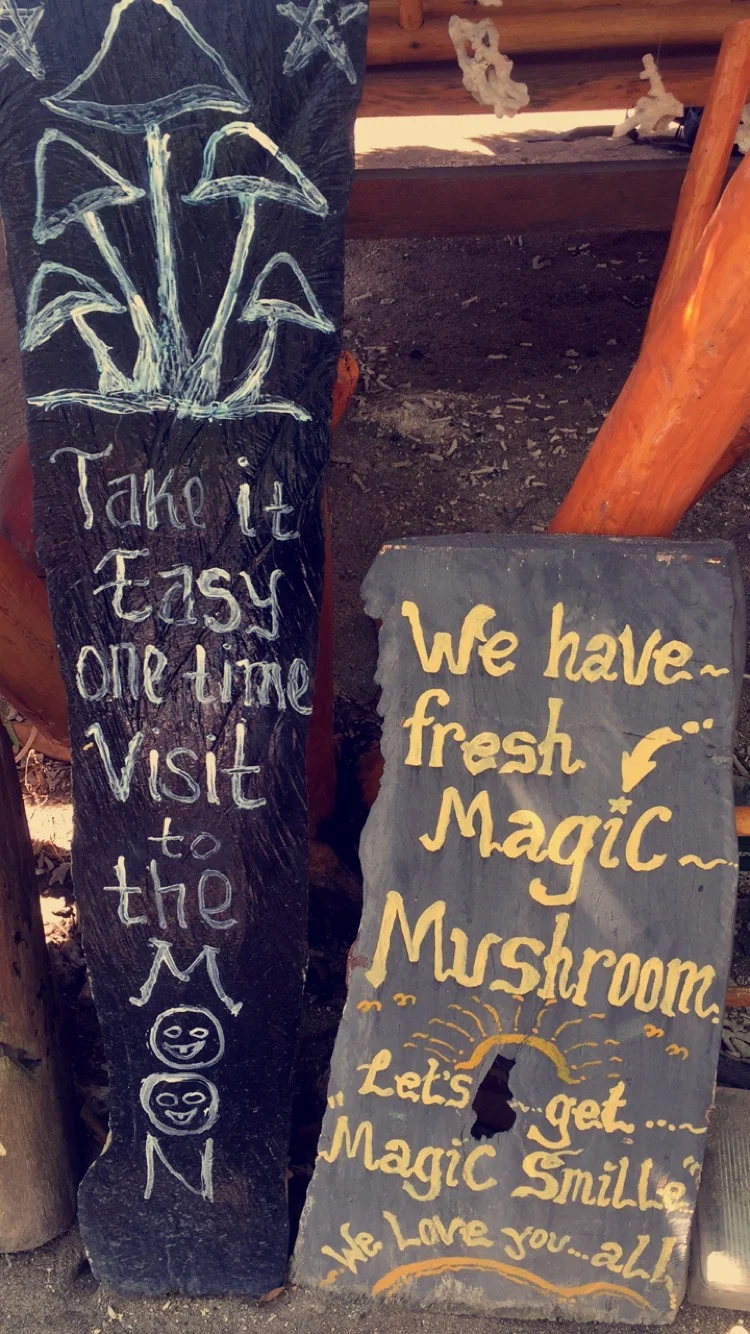 Take it
Easy
one time
Visit
to
the
MOON
We have~
fresh
Magic~
Mushroom.
"Let's ... get ....~
Magic Smille"
We Love you...all